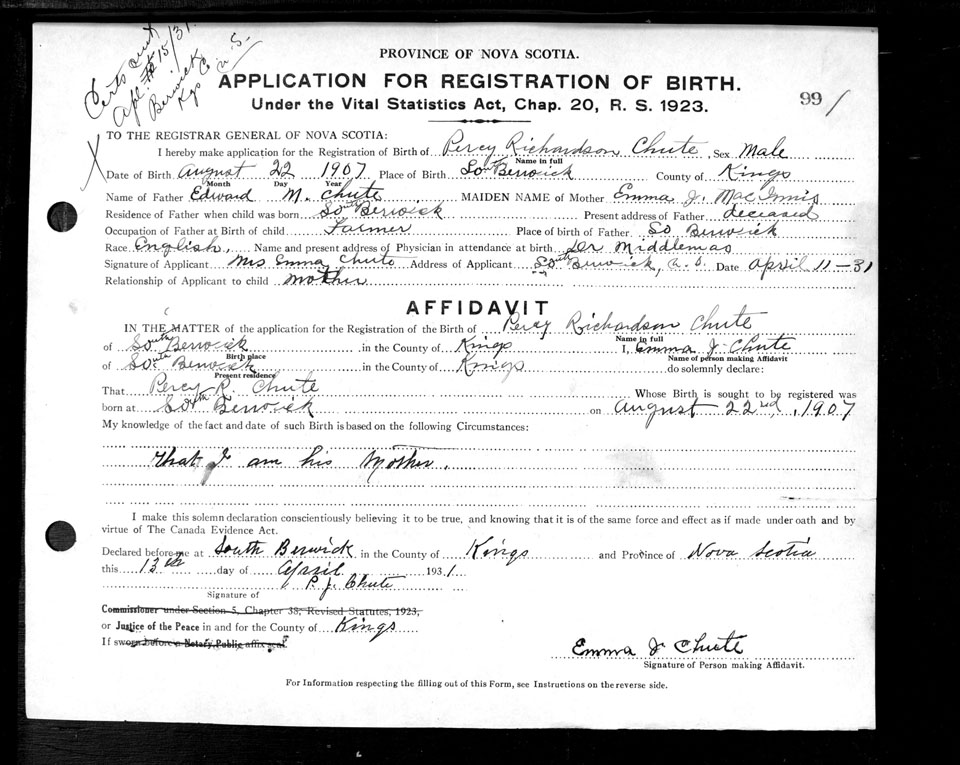 Certs sent
Apl. 15/31
Berwick
Kgs Co N.S.
PROVINCE OF NOVA SCOTIA.
APPLICATION FOR REGISTRATION OF BIRTH.
Under the Vital Statistics Act, Chap. 20, R. S. 1923.
99/
X
TO THE REGISTRAR GENERAL OF NOVA SCOTIA:
I hereby make application for the Registration of Birth of Percy Richardson Chute, Sex Male
Name in full
Date of Birth August 22 1907 Place of Birth South Berwick County of Kings
Month Day Year
Name of Father Edward M. Chute MAIDEN NAME of Mother Emma J. MacInnis
Residence of Father when child was born South Berwick Present address of Father deceased
Occupation of Father at Birth of child Farmer Place of birth of Father So Berwick
Race English, Name and present address of Physician in attendance at birth Dr Middlemas
Signature of Applicant Mrs Emma Chute Address of Applicant South Berwick, N. S. Date April 11-31
Relationship of Applicant to child Mother
AFFIDAVIT
IN THE MATTER of the application for the Registration of the Birth of Percy Richardson Chute
Name in full
of South Berwick in the County of Kings I, Emma J Chute
Birth place Name of person making Affidavit
of South Berwick in the County of Kings do solemnly declare:
Present residence
That Percy R. Chute Whose Birth is sought to be registered was
born at South Berwick on August 22nd, 1907
My knowledge of the fact and date of such Birth is based on the following Circumstances:
that I am his Mother.
I make this solemn declaration conscientiously believing it to be true, and knowing that it is of the same force and effect as if made under oath and by
virtue of The Canada Evidence Act.
Declared before me at South Berwick in the County of Kings and Province of Nova Scotia
this 13th day of April 1931
P. J. Chute
Signature of
Commissioner under Section 5, Chapter 38, Revised Statutes, 1923,
or Justice of the Peace in and for the County of Kings
If sworn before a Notary Public affix seal
Emma J Chute
Signature of Person making Affidavit.
For Information respecting the filling out of this Form, see Instructions on the reverse side.